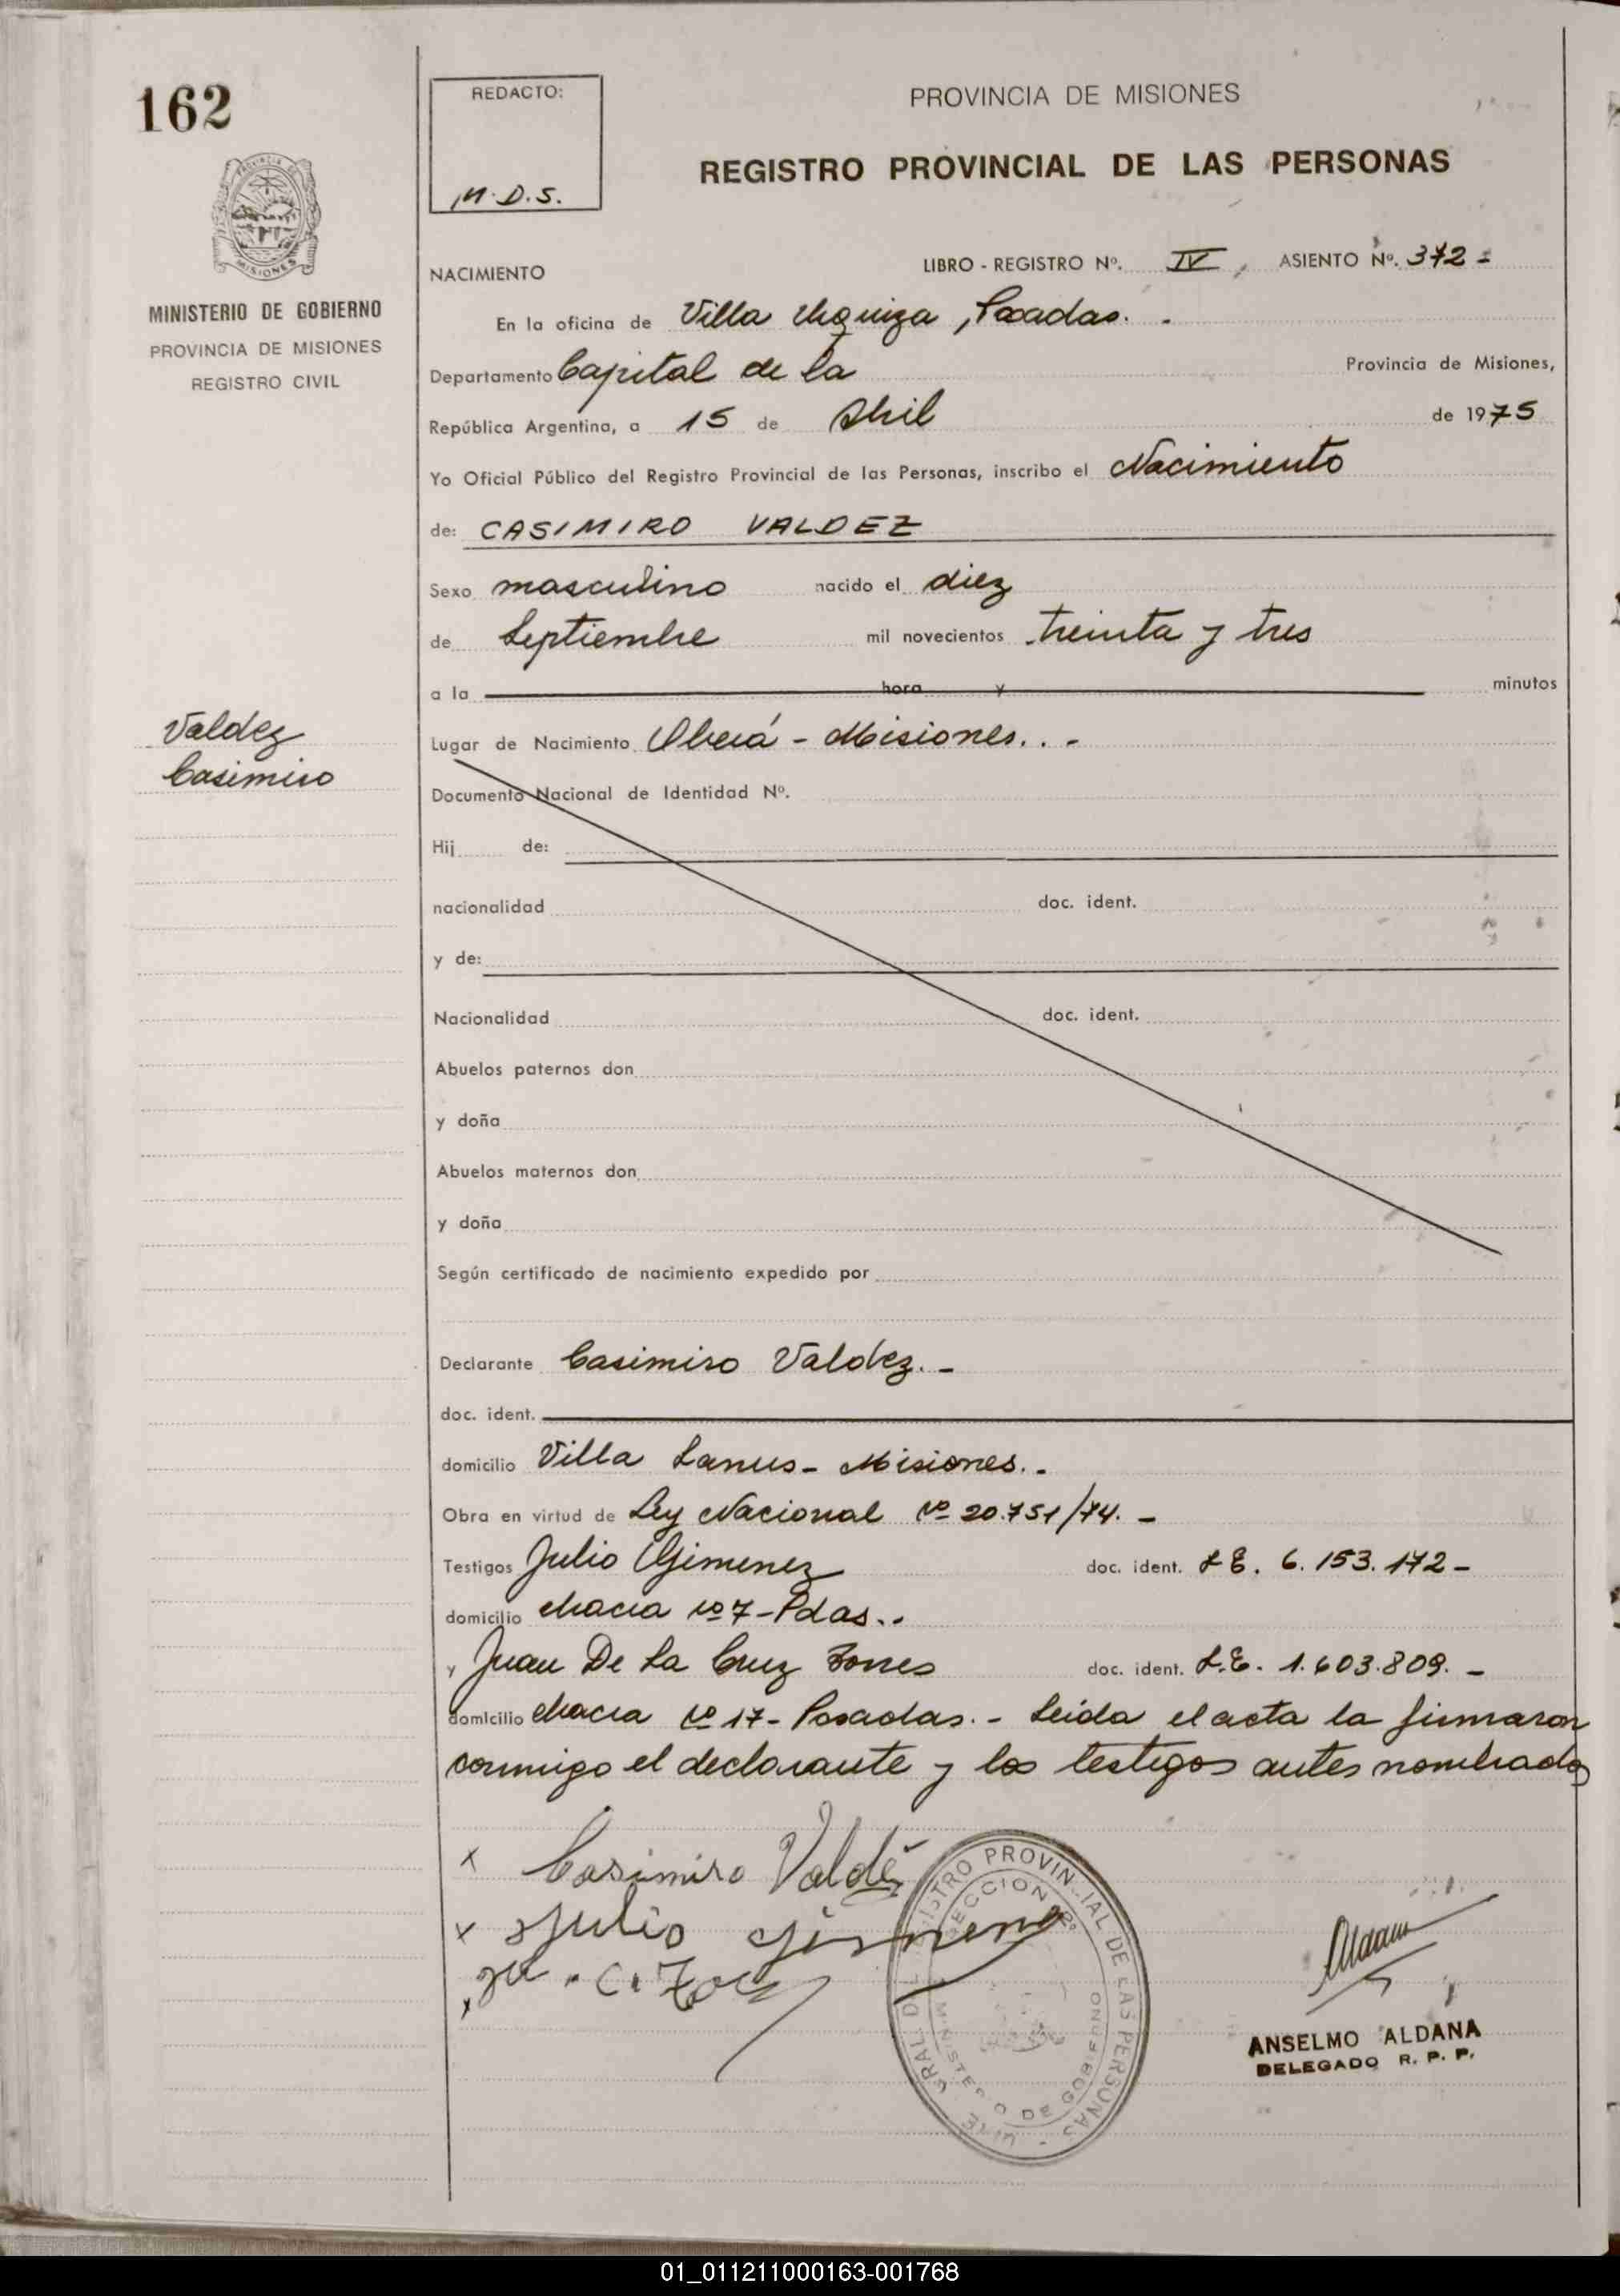 162
REDACTO:
M.D.S.
PROVINCIA DE MISIONES
REGISTRO PROVINCIAL DE LAS PERSONAS
MISIONES
MINISTERIO DE GOBIERNO
PROVINCIA DE MISIONES
REGISTRO CIVIL
NACIMIENTO
LIBRO - REGISTRO Nº. IV, ASIENTO Nº. 372-
En la oficina de Villa Urquiza, Posadas. -
Departamento Capital de la Provincia de Misiones,
República Argentina, a 15 de Abril de 1975
Yo Oficial Público del Registro Provincial de las Personas, inscribo el Nacimiento
de: CASIMIRO VALDEZ
Sexo masculino nacido el diez
de Septiembre mil novecientos treinta y tres
a la hora y minutos
Valdez
Casimiro
Lugar de Nacimiento Oberá - Misiones. . -
Documento Nacional de Identidad Nº.
Hij de:
nacionalidad doc. ident.
y de:
Nacionalidad doc. ident.
Abuelos paternos don
y doña
Abuelos maternos don
y doña
Según certificado de nacimiento expedido por
Declarante Casimiro Valdez. -
doc. ident.
domicilio Villa Lanus - Misiones. -
Obra en virtud de Ley Nacional Nº 20.751/74. -
Testigos Julio Gimenez doc. ident. L E. 6.153.172 -
domicilio chacra Nº 7 - Pdas. .
y Juan De La Cruz Torres doc. ident. L.E. 1.603.809. -
domicilio chacra Nº 17 - Posadas. - Leida el acta la firmaron
conmigo el declarante y los testigos antes nombrados
x Casimiro Valdéz
x Julio Gimenez
x
REGISTRO PROVINCIAL DE LAS PERSONAS
MINISTERIO DE GOBIERNO
Aldana
ANSELMO ALDANA
DELEGADO R. P. P.
01_011211000163-001768